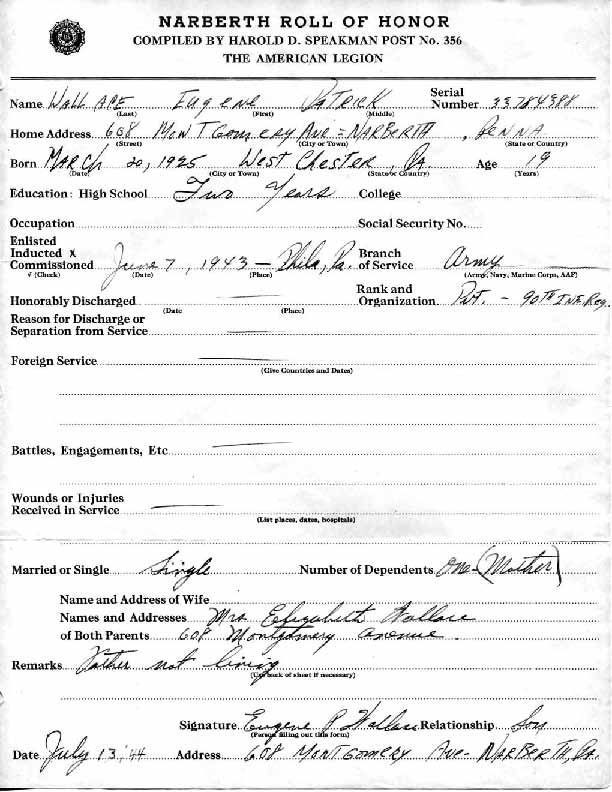 NARBERTH ROLL OF HONOR
COMPILED BY HAROLD D. SPEAKMAN POST No. 356
THE AMERICAN LEGION
Name WALLACE EUgENE PATRICK Serial Number 33784988
(Last) (First) (Middle)
Home Address 608 MONTGOMERY Ave = NARBERTH, PENNA
(Street) (City or Town) (State or Country)
Born MARCH 20, 1925 WEST CHESTER, PA Age 19
(Date) (City or Town) (State or Country) (Years)
Education: High School Two Years College
Occupation Social Security No.
Enlisted
Inducted X
Commissioned June 7, 1943 – Phila, Pa. Branch of Service Army
(Check) (Date) (Place) (Army, Navy, Marine Corps, AAF)
Honorably Discharged Rank and Organization Pvt. - 90TH INF. Reg.
(Date (Place)
Reason for Discharge or
Separation from Service
Foreign Service
(Give Countries and Dates)
Battles, Engagements, Etc
Wounds or Injuries
Received in Service
(List places, dates, hospitals)
Married or Single Single Number of Dependents One - (Mother)
Name and Address of Wife
Names and Addresses Mrs Elizabeth Wallace
of Both Parents 608 Montgomery Avenue.
Remarks Father not living
(Use back of sheet if necessary)
Signature Eugene P Wallace Relationship Son
(Person filling out this form)
Date July 13, '44 Address 608 MONTGOMERY Ave - NARBERTH, Pa.